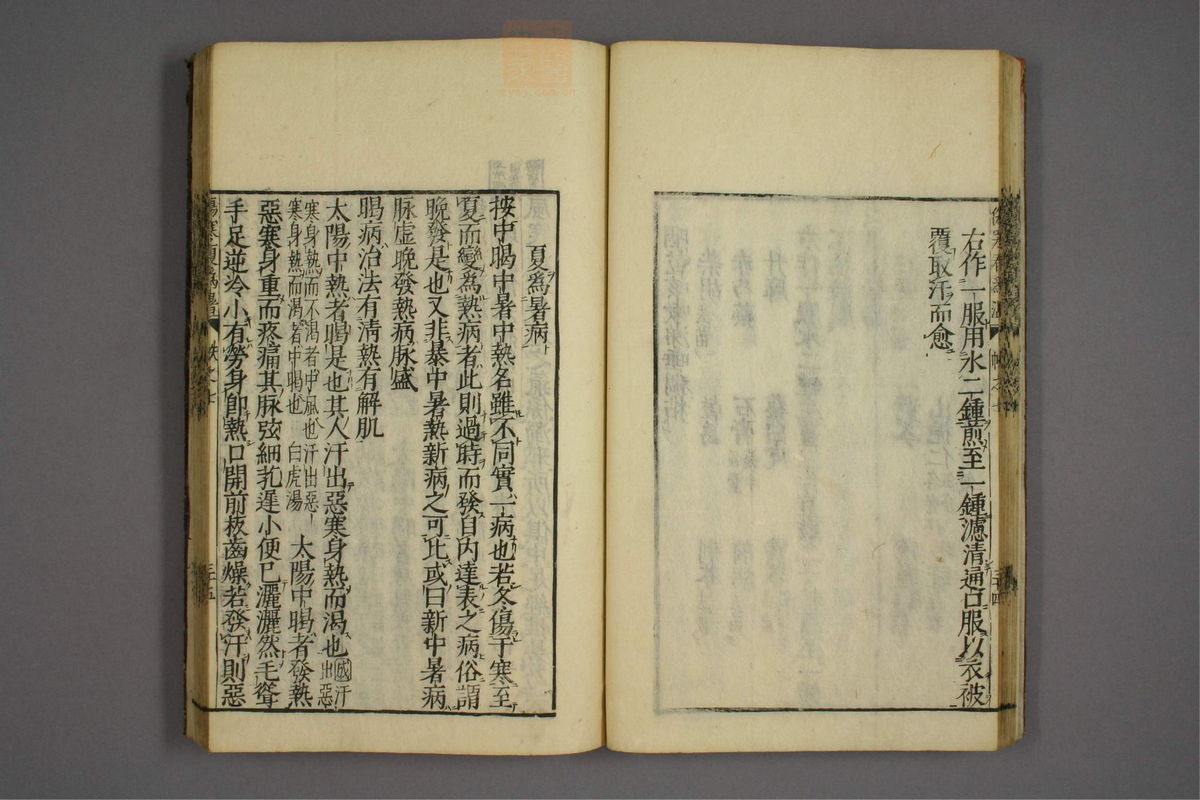 右作一服用水二鍾煎至一鍾濾清通口服以衣被
覆取汗而愈
夏爲暑病
按中暍中暑中熱名雖不同實一病也若冬傷于寒至
夏而變爲熱病者此則過時而發自内達表之病俗謂
晚發是也又非暴中暑熱新病之可比或曰新中暑病
脉虛晚發熱病脉盛
暍病治法有淸熱有解肌
太陽中熱者暍是也其人汗出惡寒身熱而渴也 成 汗出惡
寒身熱而不渴者中風也汗出惡
寒身熱而渴者中暍也 白虎湯 太陽中暍者發熱
惡寒身重而疼痛其脉弦細芤遲小便已灑灑然毛聳
手足逆冷小有勞身卽熱口開前板齒燥若發汗則惡
三十五